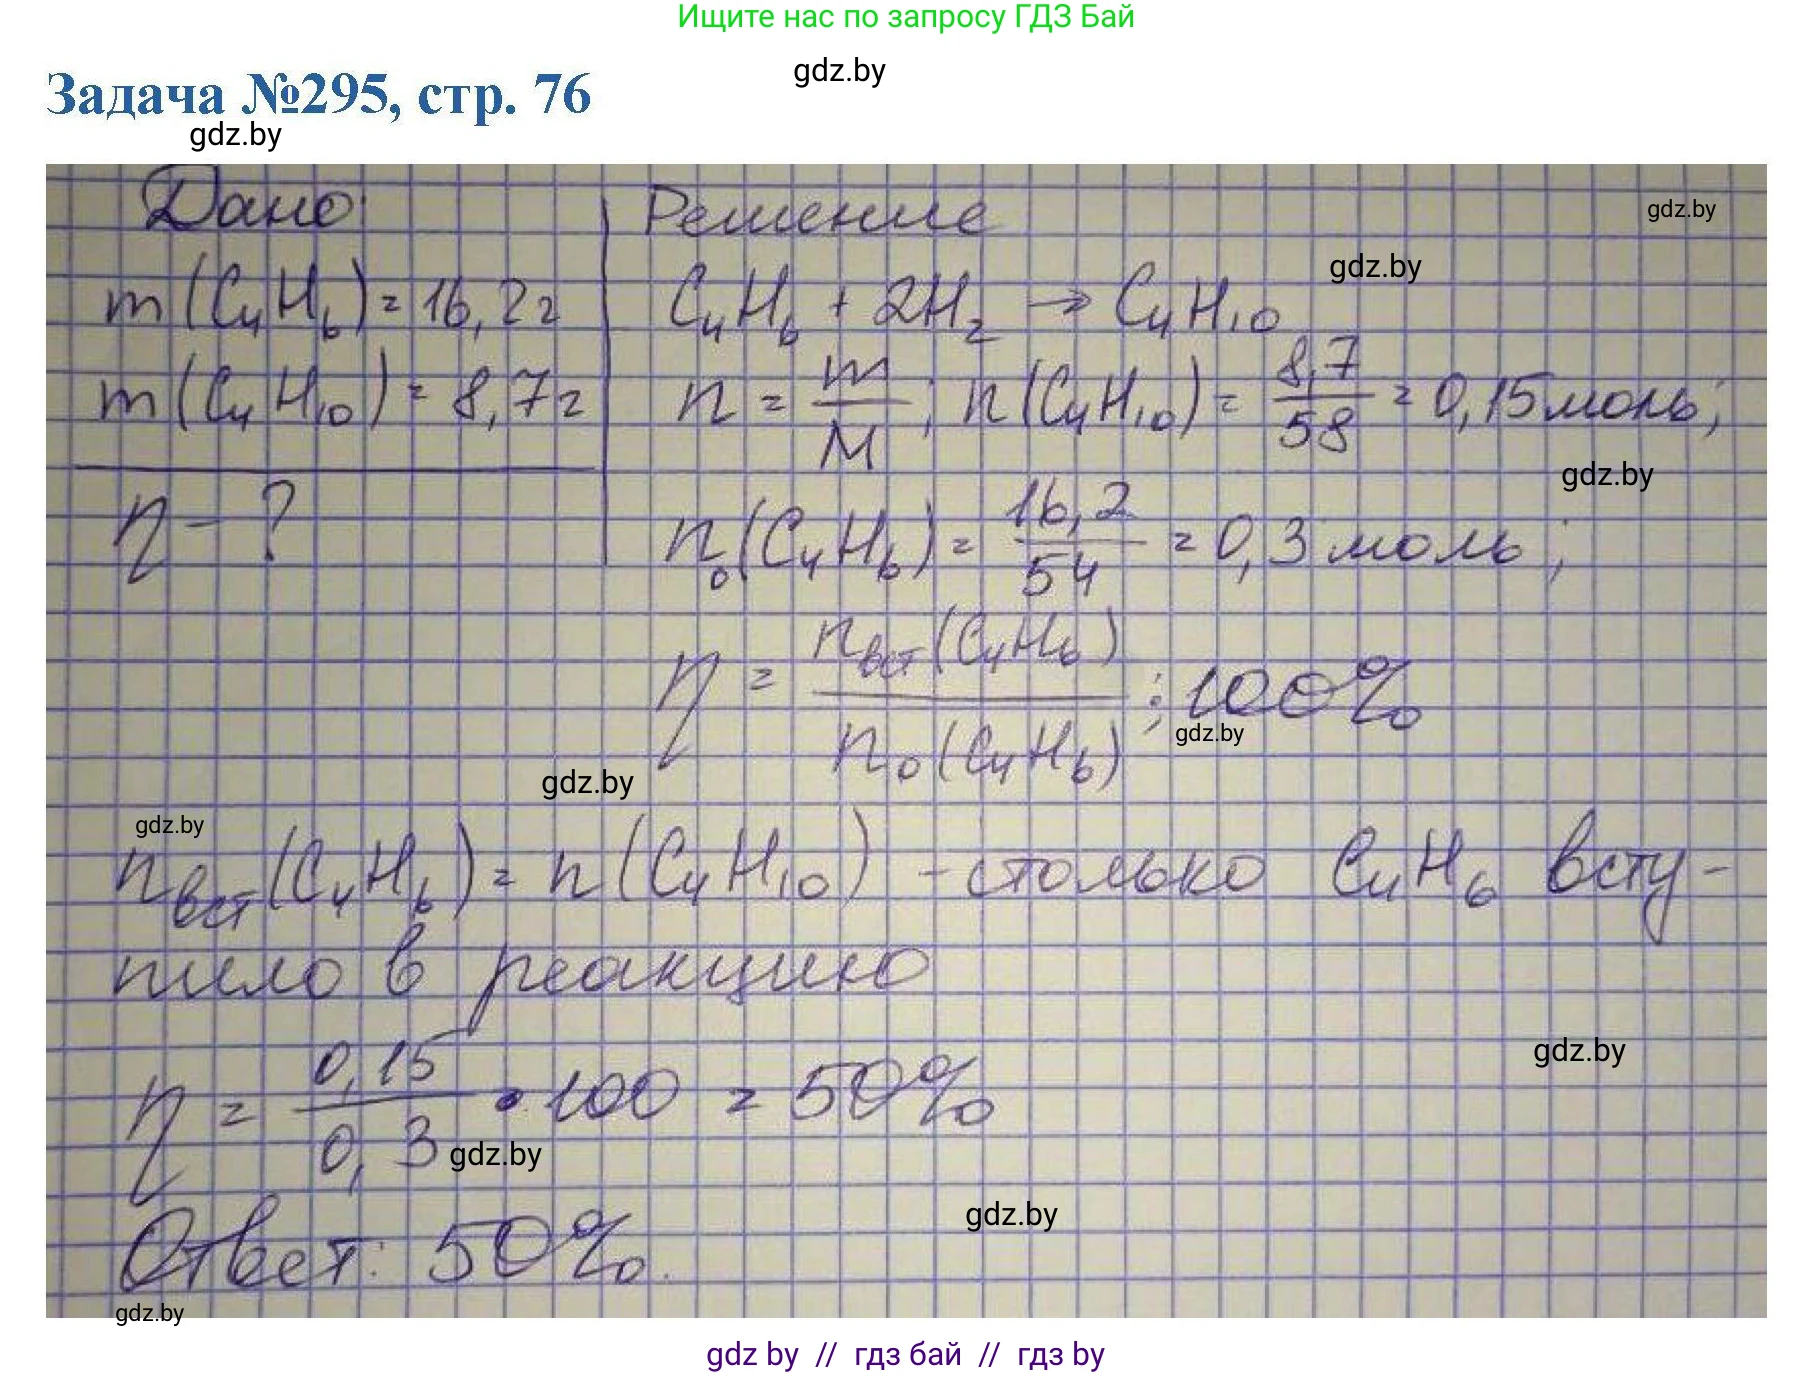 Ищите нас по запросу ГДЗ Бай
gdz.by
Задача №295, стр. 76
gdz.by
Дано:
m(C₄H₆)=16,2г
m(C₄H₁₀)=8,7г
η-?
Решение
gdz.by
gdz.by
C₄H₆ + 2H₂ → C₄H₁₀
n = m/M; n(C₄H₁₀) = 8,7/58 = 0,15моль;
gdz.by
n₀(C₄H₆) = 16,2/54 = 0,3 моль;
η = nвст(C₄H₆)/n₀(C₄H₆) ; 100%
gdz.by
gdz.by
gdz.by
nвст(C₄H₆) = n(C₄H₁₀) - столько C₄H₆ всту-
пило в реакцию
gdz.by
η = 0,15/0,3 • 100 = 50%
gdz.by
gdz.by
Ответ: 50%.
gdz.by
gdz by // гдз бай // гдз by